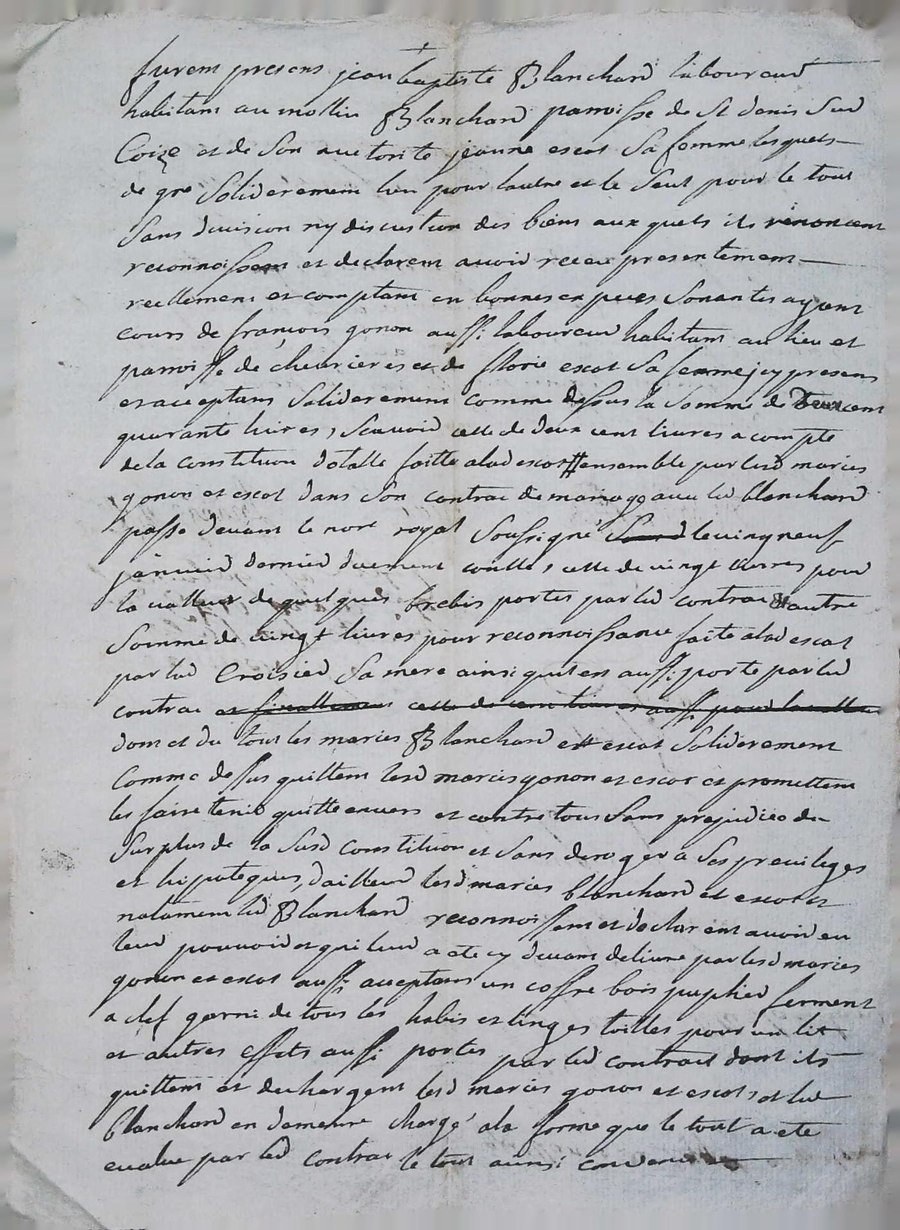 furent presens jean baptiste Blanchard laboureur
habitant au mollin Blanchard parroisse de St denis Sur
Coize et de Son autorite jeanne escot Sa femme lesquels
de gre Soliderement lun pour lautre et le Seul pour le tout
Sans division ny discution des biens aux quels ils renoncent
reconnoissent et declarent avoir receu presentement
reellement et comptant en bonnes espeices Sonantes ayent
cours de françois gonon aussi laboureur habitant au lieu et
parroisse de chevrieres et de florie escot Sa femme jcy presens
et acceptans Soliderement comme dessus la Somme de Deux cent
quarante livres, Scavoir celle de deux cent livres a compte
de la constitution dotalle faitte alad escot ensemble par lesd maries
gonon et escot dans Son contrac de mariage avec led blanchard
passe devant le nore royal Soussigné le vingt neuf
janvier dernier duement conttle, celle de vingt livres pour
la valleur de quelques brebis portes par led contrac & autre
Somme de vingt livres pour reconnoissance faite alad escot
par lad Croisier Sa mere ainsi quil est aussi porte par led
contrac et finallement celle de livres aussi pour la valleur
dont et du tout les maries Blanchard et escot Soliderement
Comme dessus quittent lesd maries gonon et escot et promettent
les faire tenir quitte envers et contre tous Sans prejudice du
Surplus de la Susd Constitution et Sans deroger a Ses previleges
et hipoteques, dailleur lesd maries blanchard et escot et
notament led Blanchard reconnoissent et declarent avoir eu
leur pouvoir et qui leur a ete cy devant delivre par lesd maries
gonon et escot aussi acceptans un coffre bois puplier ferment
a clef garni de tous les habis et linges toilles pour un lit
et autres effets aussi portes par led contrait dont ils
quittent et dechargent lesd maries gonon et escot et led
blanchard en demeure chargé ala forme que le tout a ete
evalue par led Contrac le tout ainsi convenu